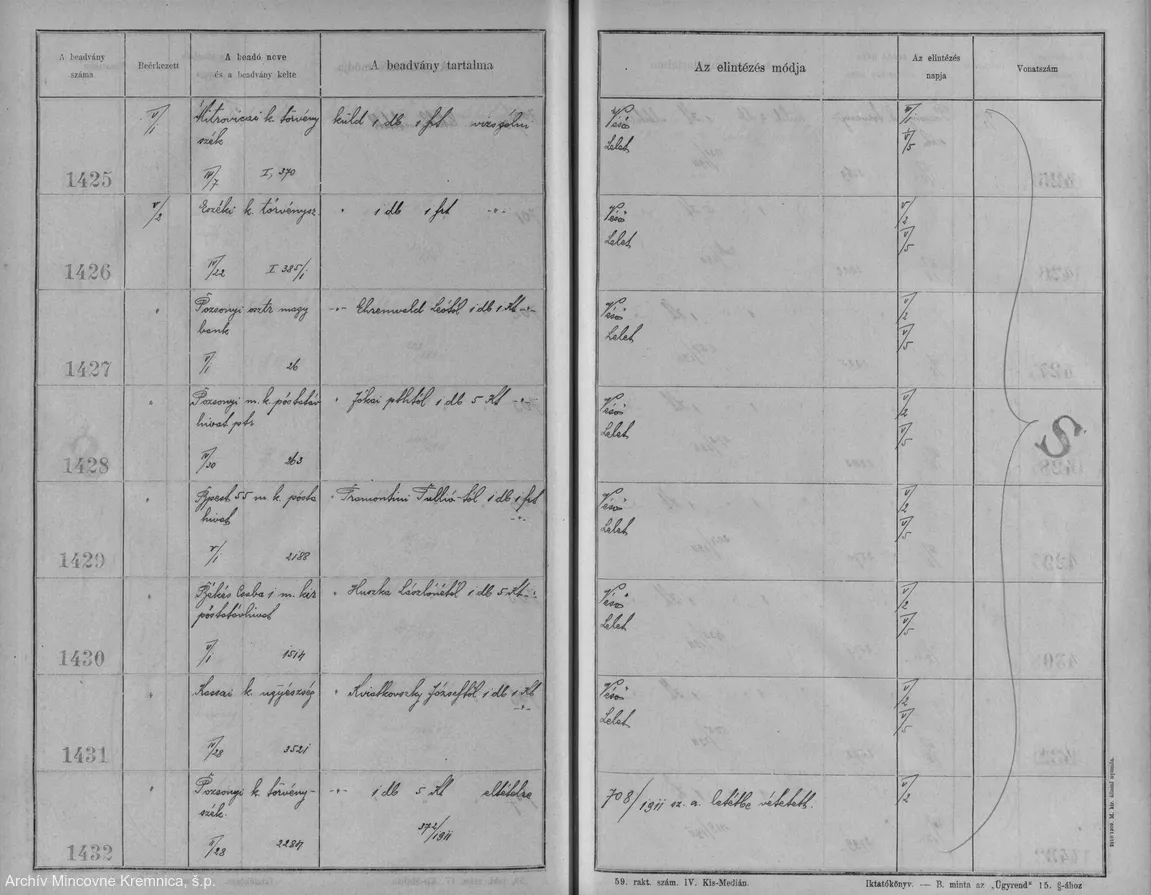 A beadvány száma
Beérkezett
A beadó neve és a beadvány kelte
A beadvány tartalma
Az elintézés módja
Az elintézés napja
Vonatszám
1425
V/1
Mitrovicai k. törvény
szék
IV/7 I, 370
küld 1 db 1 frt vizsgálni
Véső
Lelet
V/5
1426
V/2
Eszéki k. törvénysz.
IV/22 I 385/1
" 1 db 1 frt -"-
Véső V/2
Lelet V/5
1427
"
Pozsonyi osztr magy
bank
V/1 26
-"- Ehrenwald Leótól 1 db 1 Kt -"-
Véső V/2
Lelet V/5
1428
"
Pozsonyi m. k. póstatáv
hivat ptr
IV/30 263
" Jókai pthtól 1 db 5 Kt -"-
Véső V/2
Lelet V/5
1429
"
Bpest 55 m. k. pósta
hivat
V/1 2188
" Tramontini Tullió-tól 1 db 1 frt
-"-
Véső V/2
Lelet V/5
1430
"
Békés Csaba 1 m. kir
póstatávhivat
V/1 1514
" Huszka Lászlónétól 1 db 5 Kt -"-
Véső V/2
Lelet V/5
1431
"
Kassai k. ügyészség
IV/28 3521
" Kviatkovszky Józseftől 1 db 1 Kt
-"-
Véső V/2
Lelet V/5
1432
"
Pozsonyi k. törvény-
szék.
2284
-"- 1 db 5 Kt eltételre
372/1911
708/1911 sz. a. letétbe vétetett. V/2
S
59. rakt. szám. IV. Kis-Medián.
Iktatókönyv. — B. minta az „Ügyrend" 15. §-ához
Archív Mincovne Kremnica, š.p.